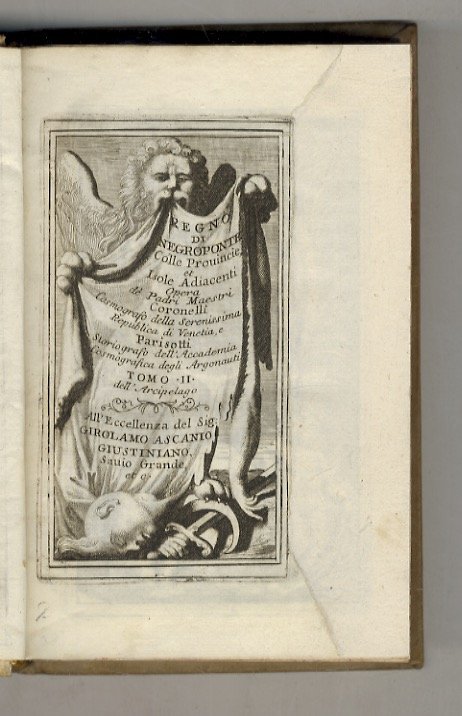 REGNO
DI
NEGROPONTE
Colle Prouincie,
et
Isole Adiacenti
Opera
de Padri Maestri
Coronelli
Cosmografo della Serenissima
Republica di Venetia, e
Parisotti
Storiografo dell'Accademia
Cosmografica degli Argonauti
TOMO · II ·
dell'Arcipelago
All'Eccellenza del Sig:
GIROLAMO ASCANIO
GIUSTINIANO,
Sauio Grande,